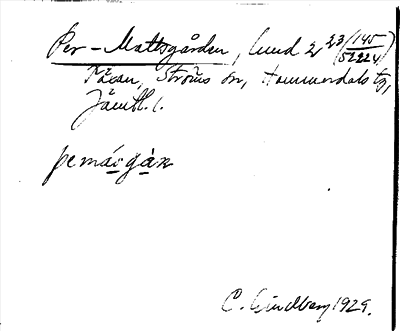 Per-Mattsgården, lund 2 23/145 (52224)
Tåsan, Ströms sn, Hammerdals tg,
Jämtl. l.
pemásgàn
C. Lindberg 1929.